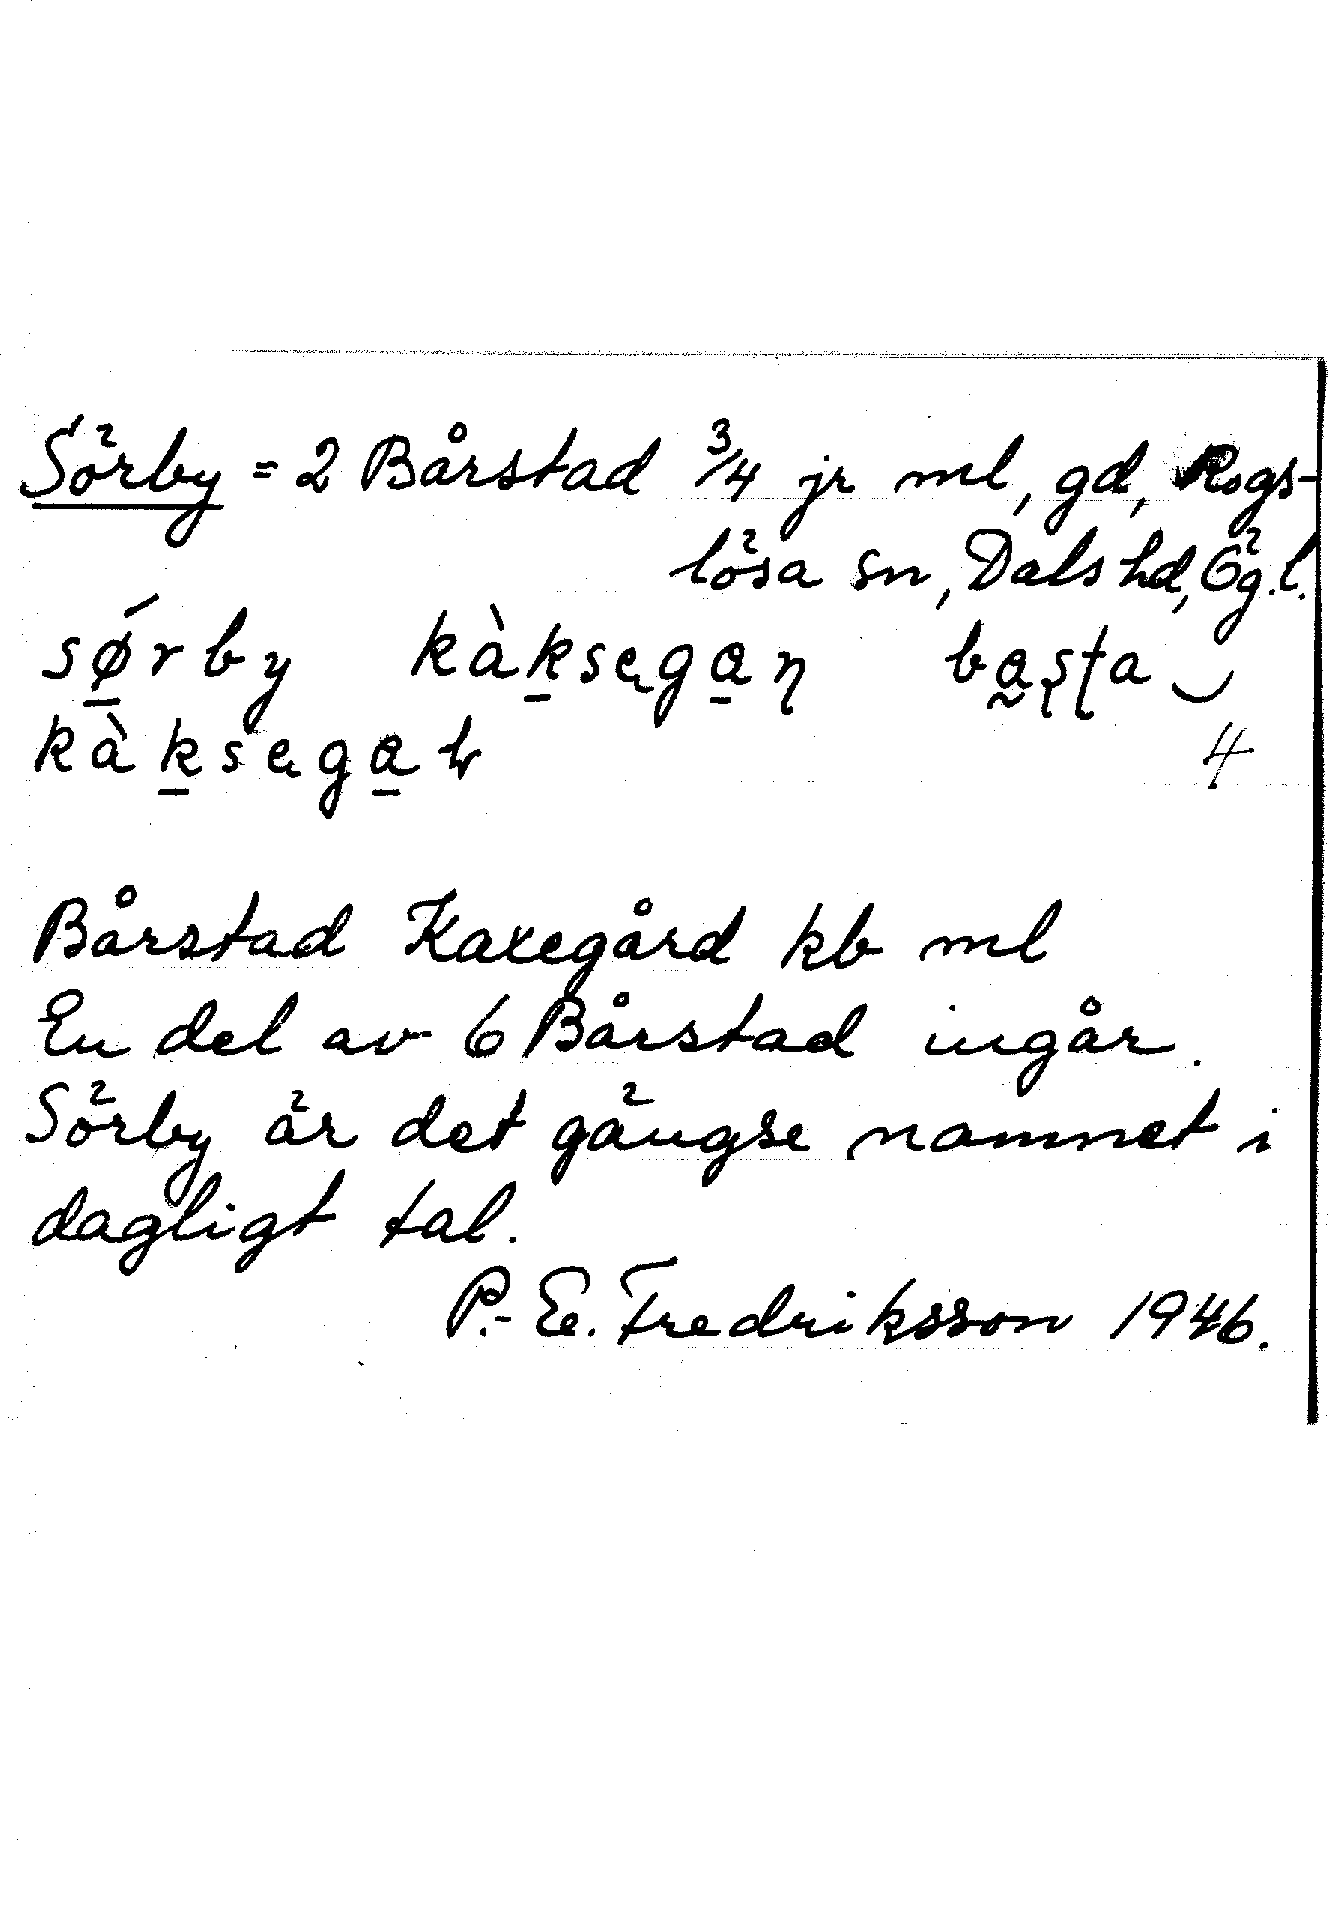 Sörby = 2 Bårstad 3/4 jr ml, gd, Rogs-
lösa sn, Dals hd, Ög.l.
sǿ̱rby kàḵsega̱ɳ ba̰ʂʈa ‿
kàḵsega̱ɽ 4
Bårstad Kaxegård kb ml
En del av 6 Bårstad ingår.
Sörby är det gängse namnet i
dagligt tal.
P.-E. Fredriksson 1946.